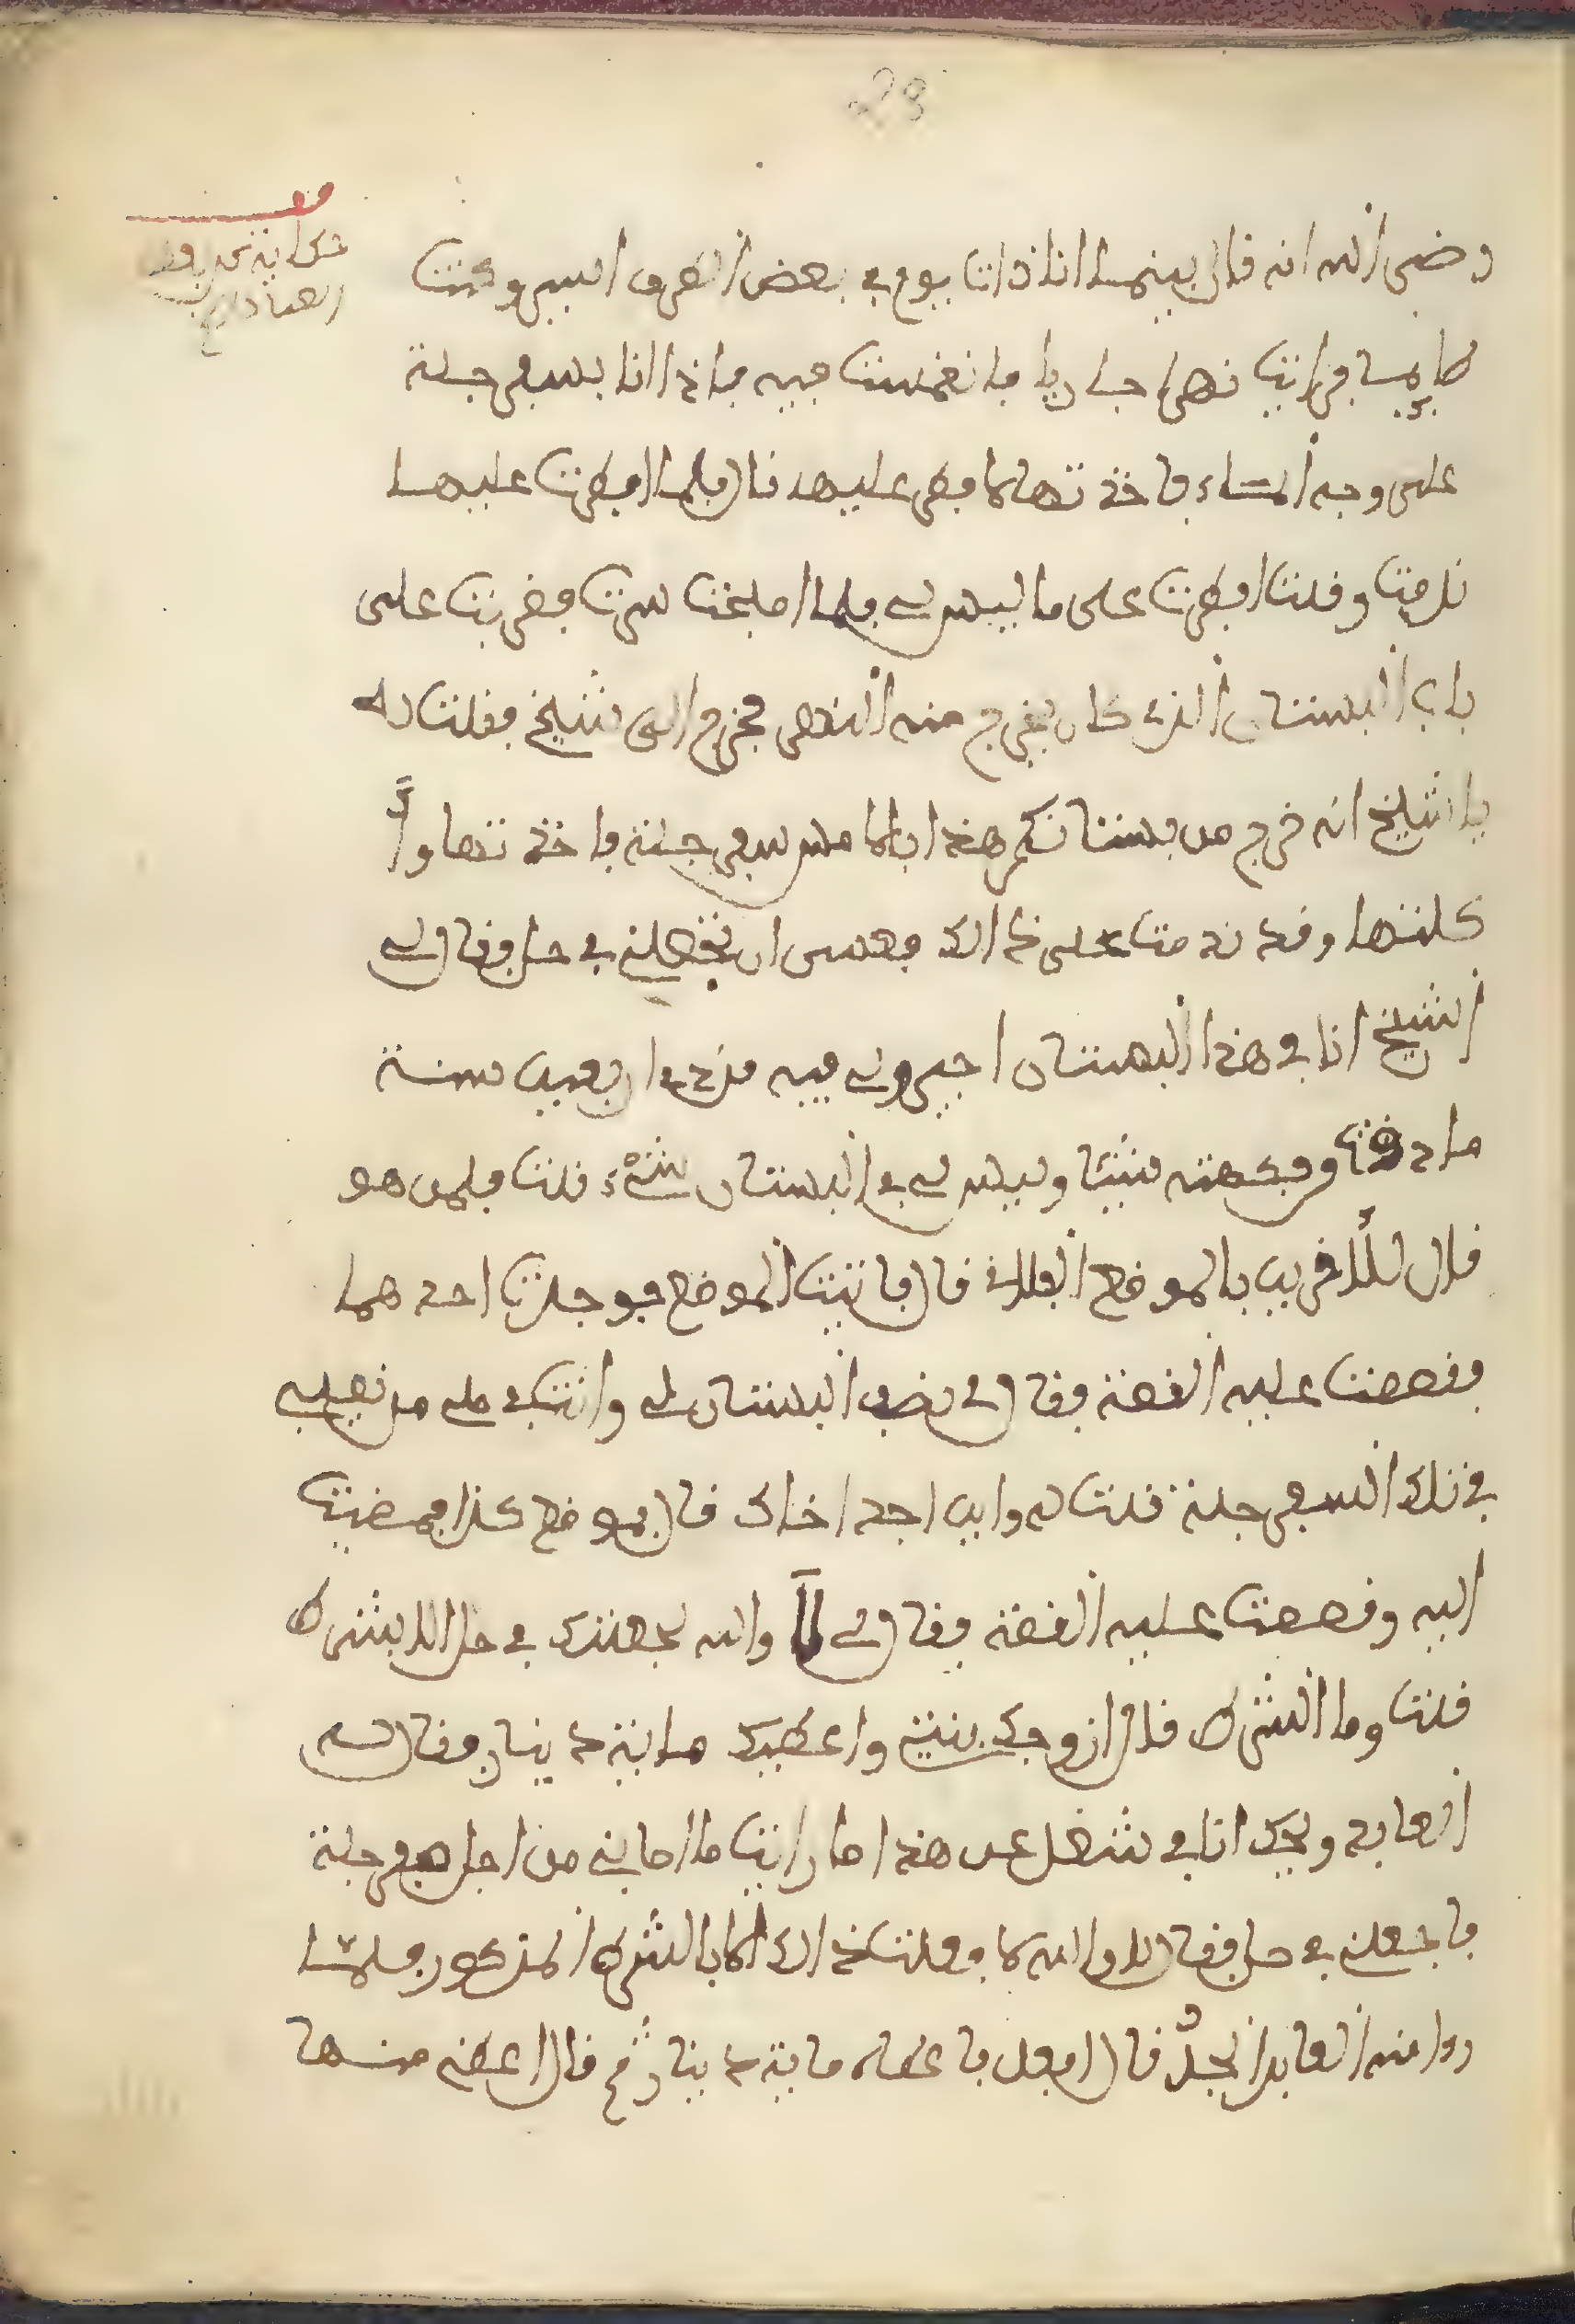 28
رضى الله انه قال بينما انا ذات يوم في بعض الطرق اسير وكنت
صايما فرايت نهرا جاريا فانغمست فيه فاذا انا بسفرجلة
على وجه الماء فاخذتها لافطر عليها قال فلما افطرت عليها
ندمت وقلت افطرت على ما ليس لي فلما اصبحت سرت فضربت على
باب البستان الذي كان يخرج منه النهر فخرج الى شيخ فقلت له
يا شيخ انه خرج من بستانكم هذا بالامس سفرجلة فاخذتها و
كلتها وقد ندمت على ذالك فعسى ان تجعلني في حل فقال لي
الشيخ انا في هذا البستان اجير ولي فيه منذ اربعين سنة
ما ذقت فكهته شيئا وليس لي في البستان شيء قلت فلمن هو
قال للاخوين بالموضع الفلاني قال فاتيت الموضع فوجدت احدهما
فقصصت عليه القصة فقال لي نصف البستان لي وانت في حل من نصيبي
في تلك السفرجلة قلت له واين اجد اخاك قال بموضع كذا فمضيت
اليه وقصصت عليه القصة فقال لي لا والله لا جعلتك في حل الا بشرط
قلت وما الشرط قال ازوجك بنتي واعطيك ماية دينار فقال له
العابد ويحك انا في شغل عن هذا اما رايت ما اصابني من اجل سفرجلة
فاجعلني في حل فقال لا والله لا فعلت ذالك الا بالشرط المذكور فلما
راوا منه العابد الجد قال افعل فاعطاه ماية دينار ثم قال اعطني منها